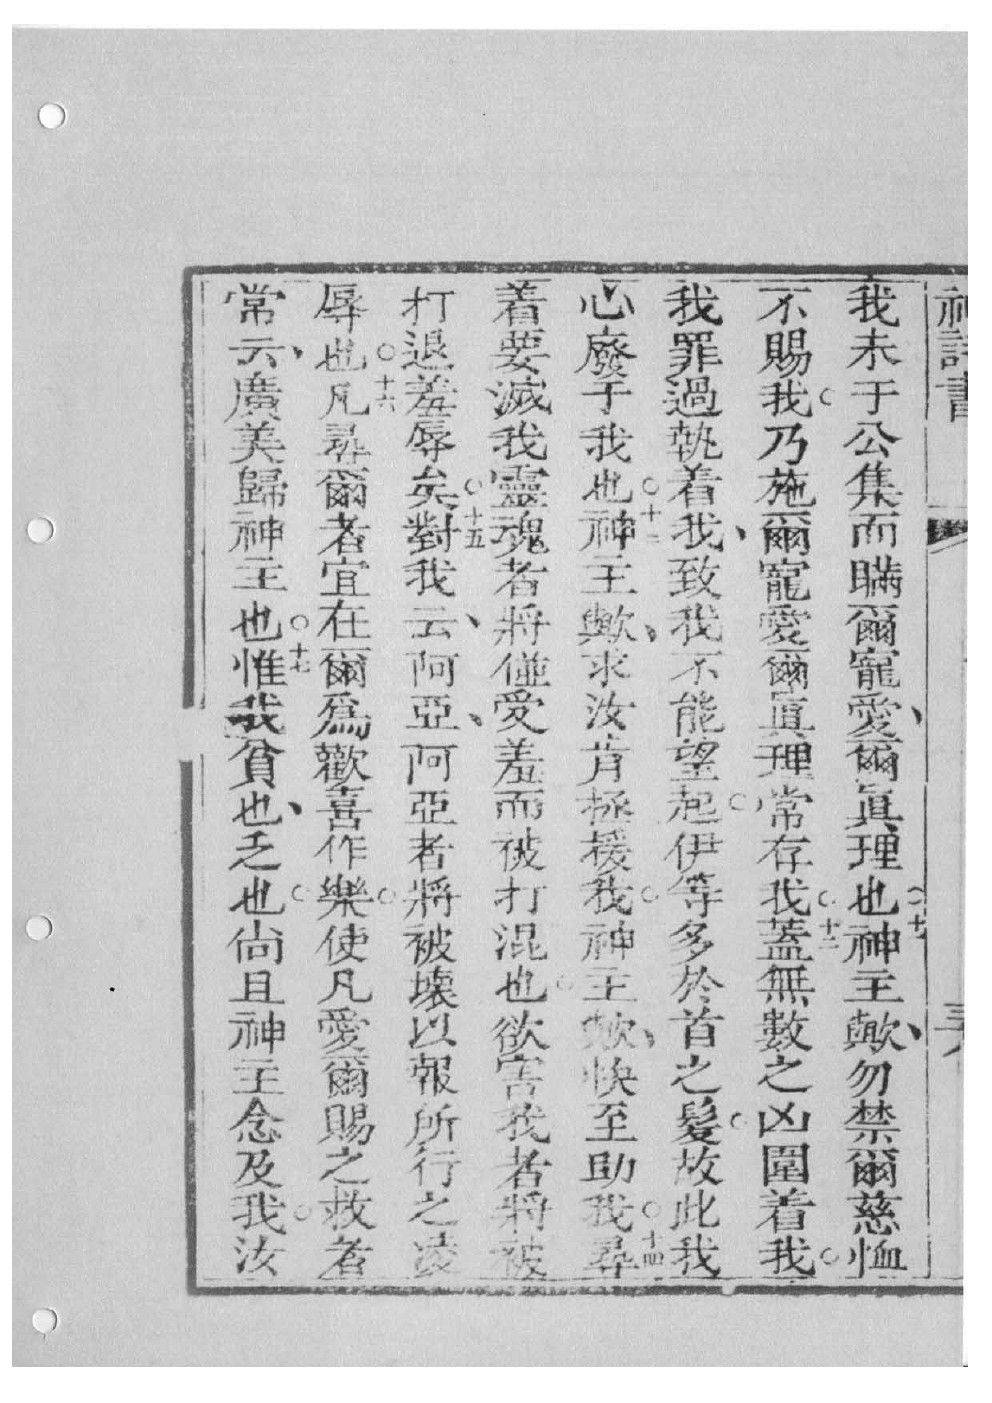 神詩書
我未于公集而瞞爾寵愛、爾眞理也○十一神主歟、勿禁爾慈恤
不賜我○乃施爾寵愛爾眞理常存我○十二蓋無數之凶圍着我○
我罪過執着我、致我不能望起○伊等多於首之髮○故此我
心廢于我也○十三神主歟、求汝肯拯援我○神主歟、快至助我○十四尋
着要滅我靈魂者將僅受羞而被打混也○欲害我者將被
打退羞辱矣○十五對我云、阿亞、阿亞者將被壞以報所行之凌
辱也○十六凡尋爾者宜在爾爲歡喜作樂○使凡愛爾賜之救者
常云、廣美歸神主也○十七惟我貧也、乏也○尚且神主念及我○汝